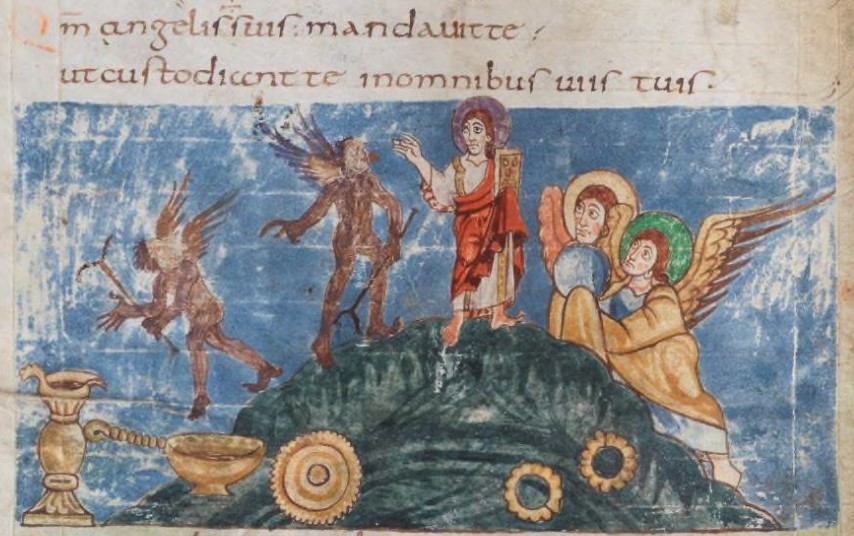 Qm̅ angelis suis: mandauit te;
ut custodiant te in omnibus uiis tuis·